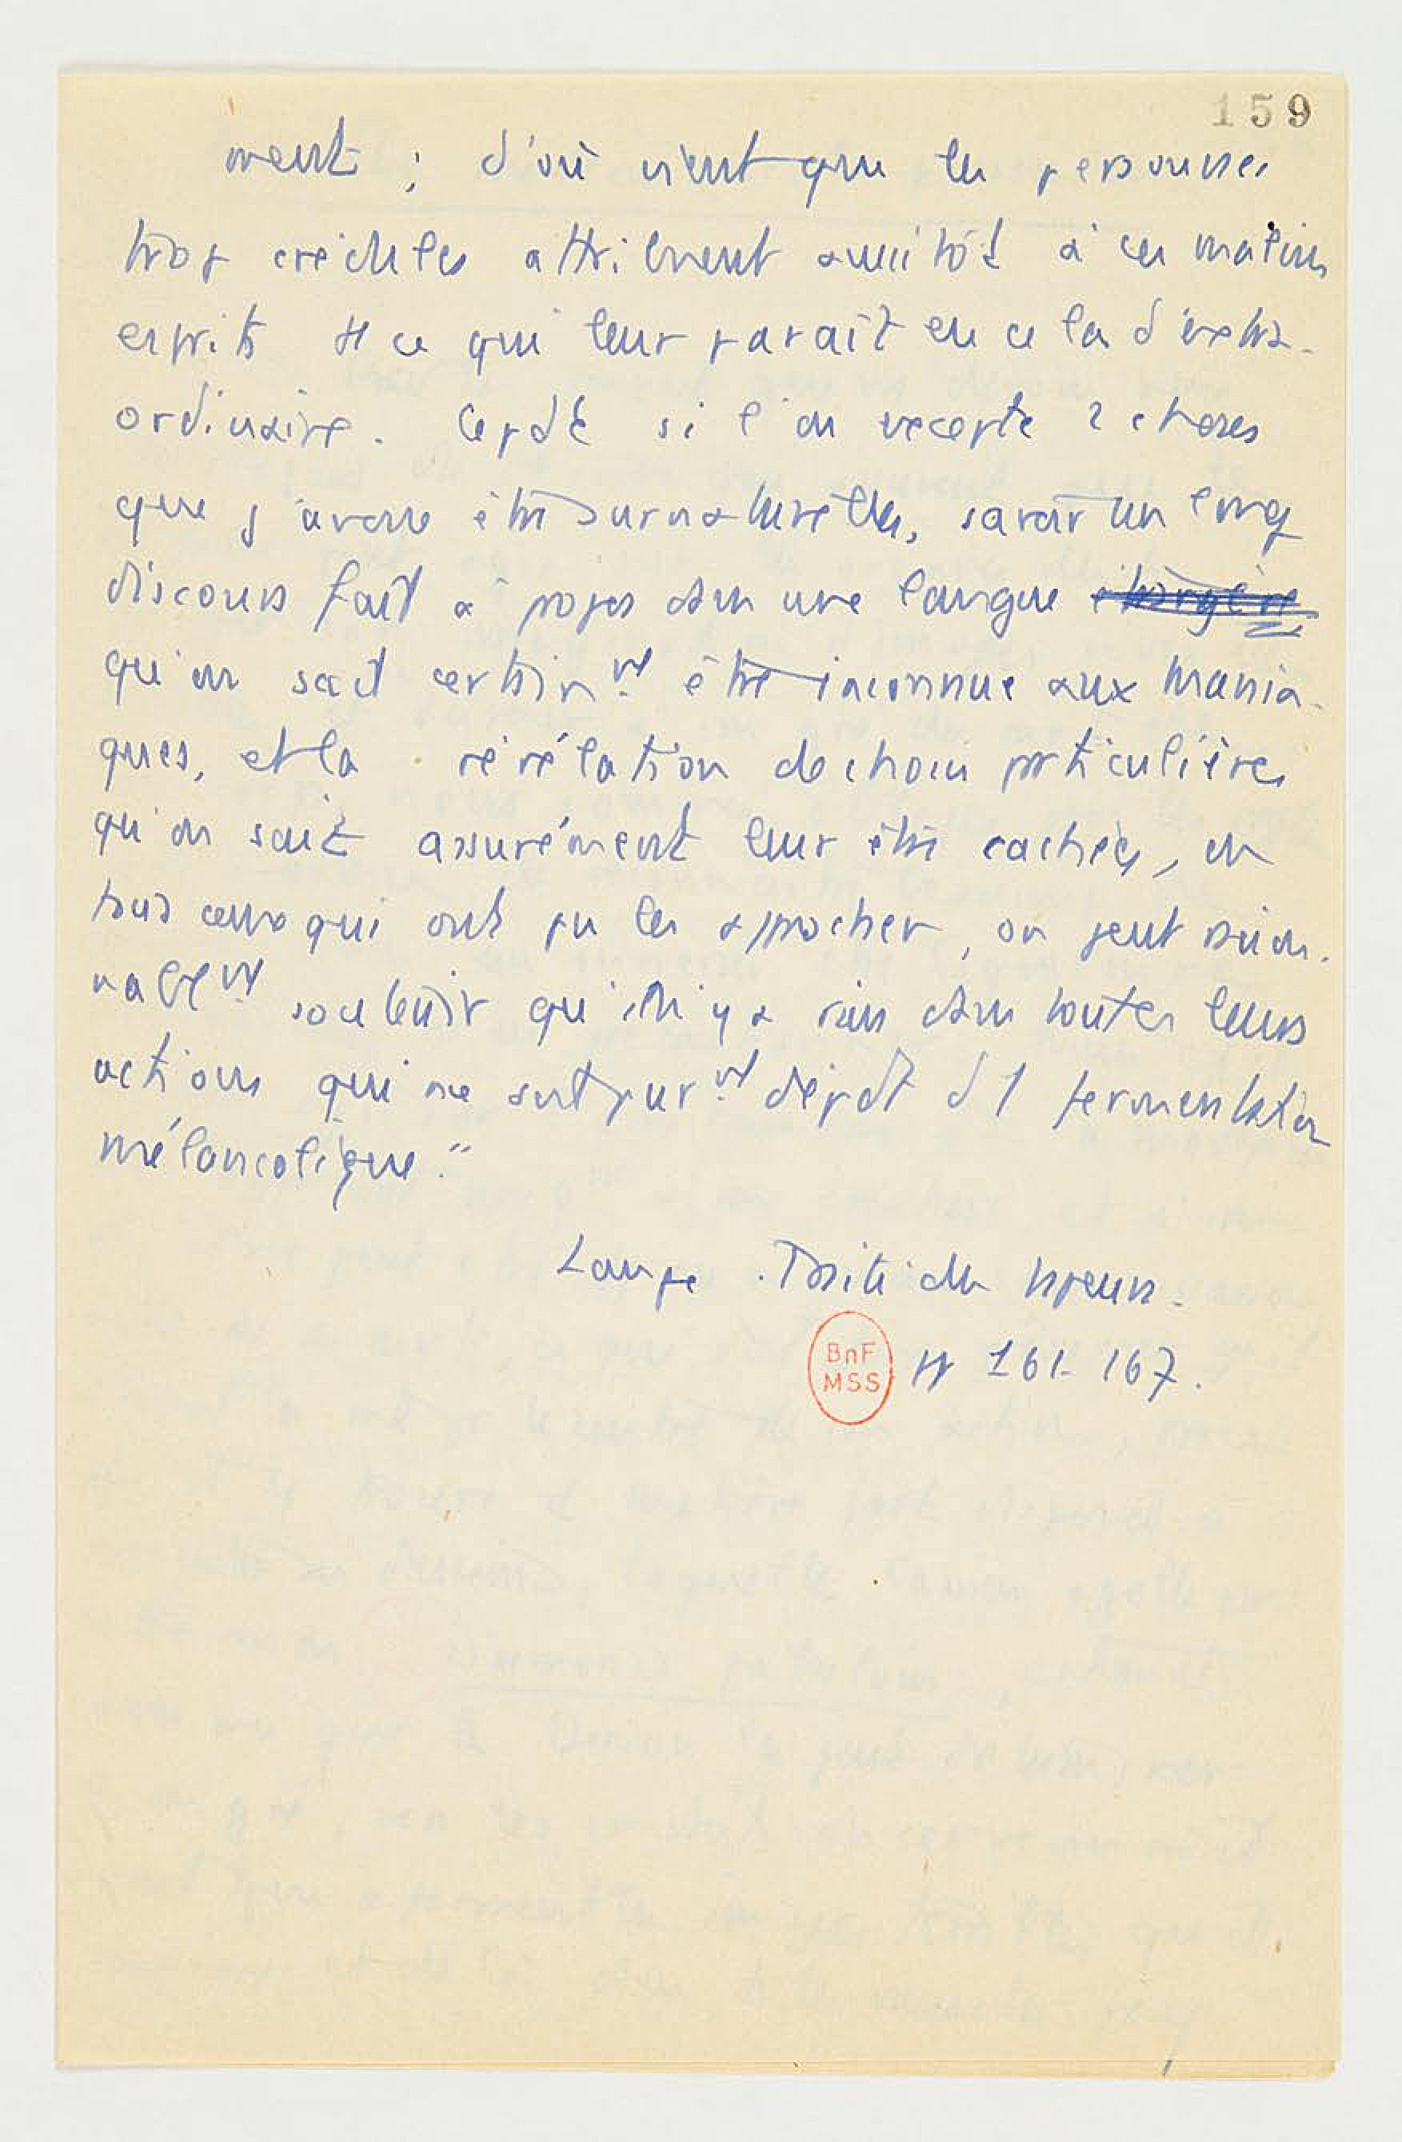 159
ment ; d'où vient que les personnes
trop crédules attribuent aussitôt à ces malins
esprits tt ce qui leur paraît en cela d'extra-
ordinaire. Cepdt si l'on excepte 2 choses
que j'avoue être surnaturelles, savoir un long
discours fait à propos dans une langue étrangère
qu'on sait certainnt être inconnue aux mania-
ques, et la révélation de choses particulières
qu'on sait assurément leur être cachées, en
tous ceux qui ont pu les approcher, on peut raison-
nablnt soutenir qu'il n'y a rien dans toutes leurs
actions qui ne soit purnt dépdt d'1 fermentation
mélancolique."
Lange. Traité des vapeurs.
BnF
MSS
pp 161-167.